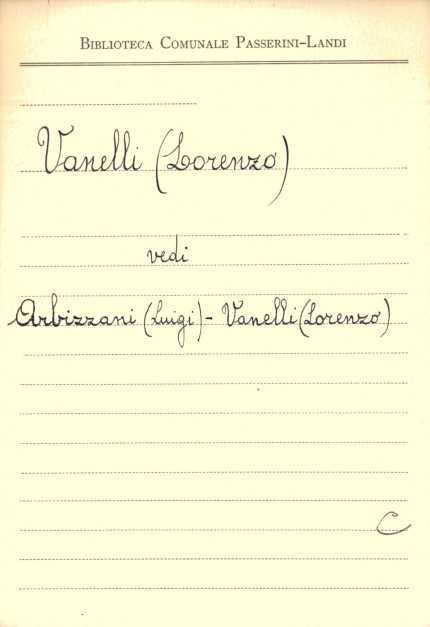 Biblioteca Comunale Passerini-Landi
Vanelli (Lorenzo)
vedi
Arbizzani (Luigi) - Vanelli (Lorenzo)
C